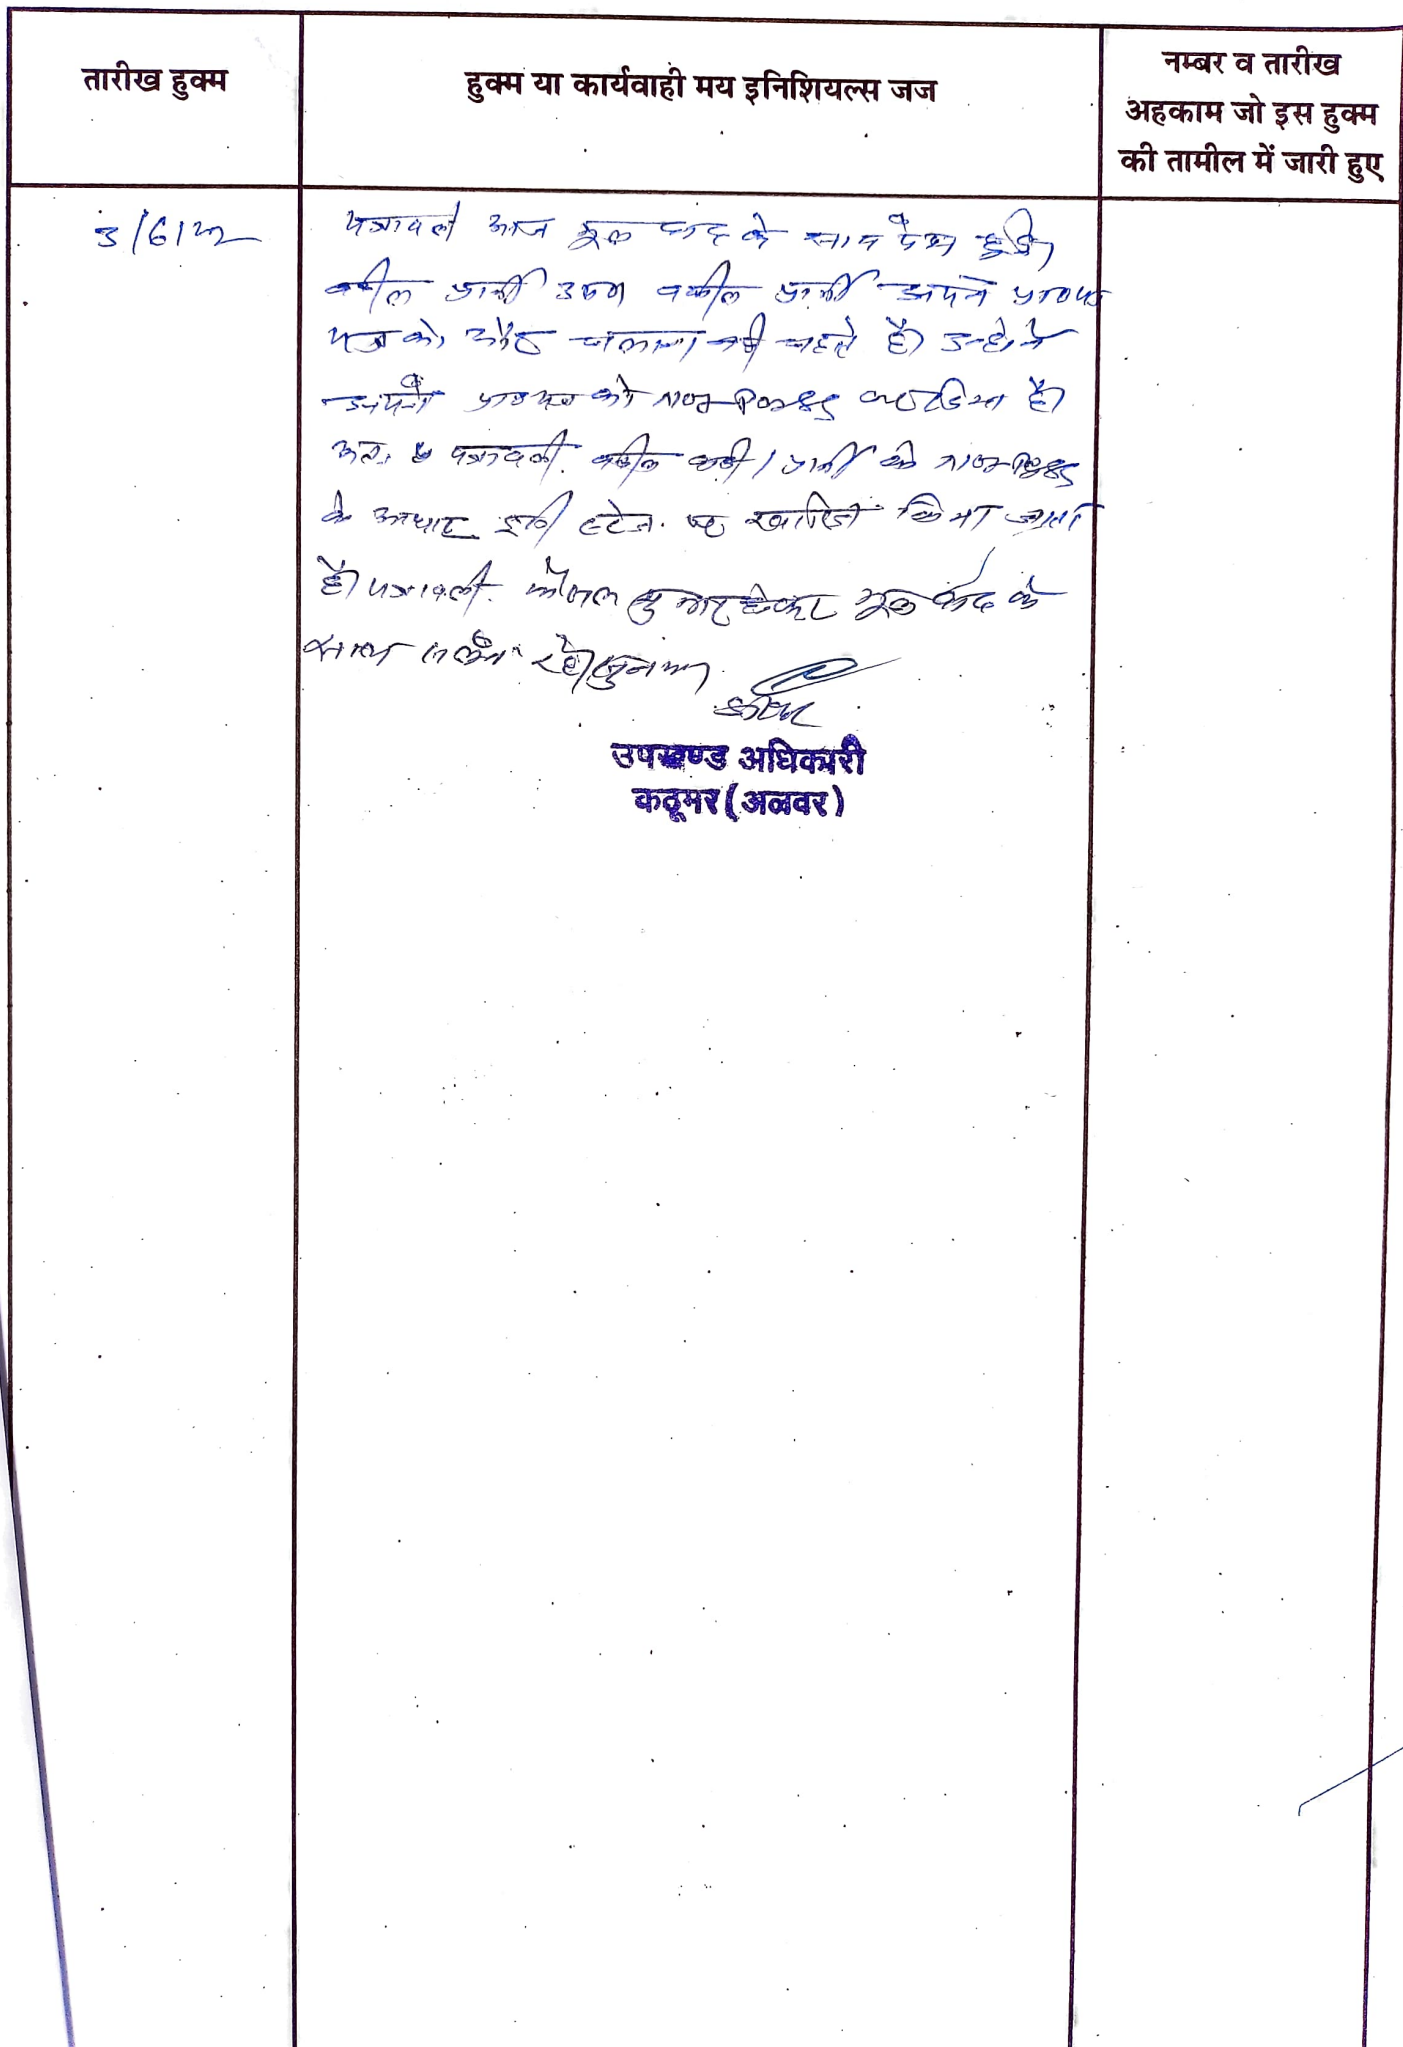 तारीख हुक्म
हुक्म या कार्यवाही मय इनिशियल्स जज
नम्बर व तारीख
अहकाम जो इस हुक्म
की तामील में जारी हुए
3/6/22
पत्रावली आज मूल वाद के साथ पेश हुई।
वकील प्रार्थी उप० वकील प्रार्थी अपने प्रा०
पत्र को और चलाना नही चहते है। उन्होने
अपने प्रा० पत्र को कर दिया है।
अतः पत्रावली वकील प्रार्थी के
के आधार इसी स्टेज पर खारिज किया जाता
है। पत्रावली फैसल शुमार होकर मूल वाद के
साथ संलग्न रहे।
उपखण्ड अधिकारी
कठूमर (अलवर)